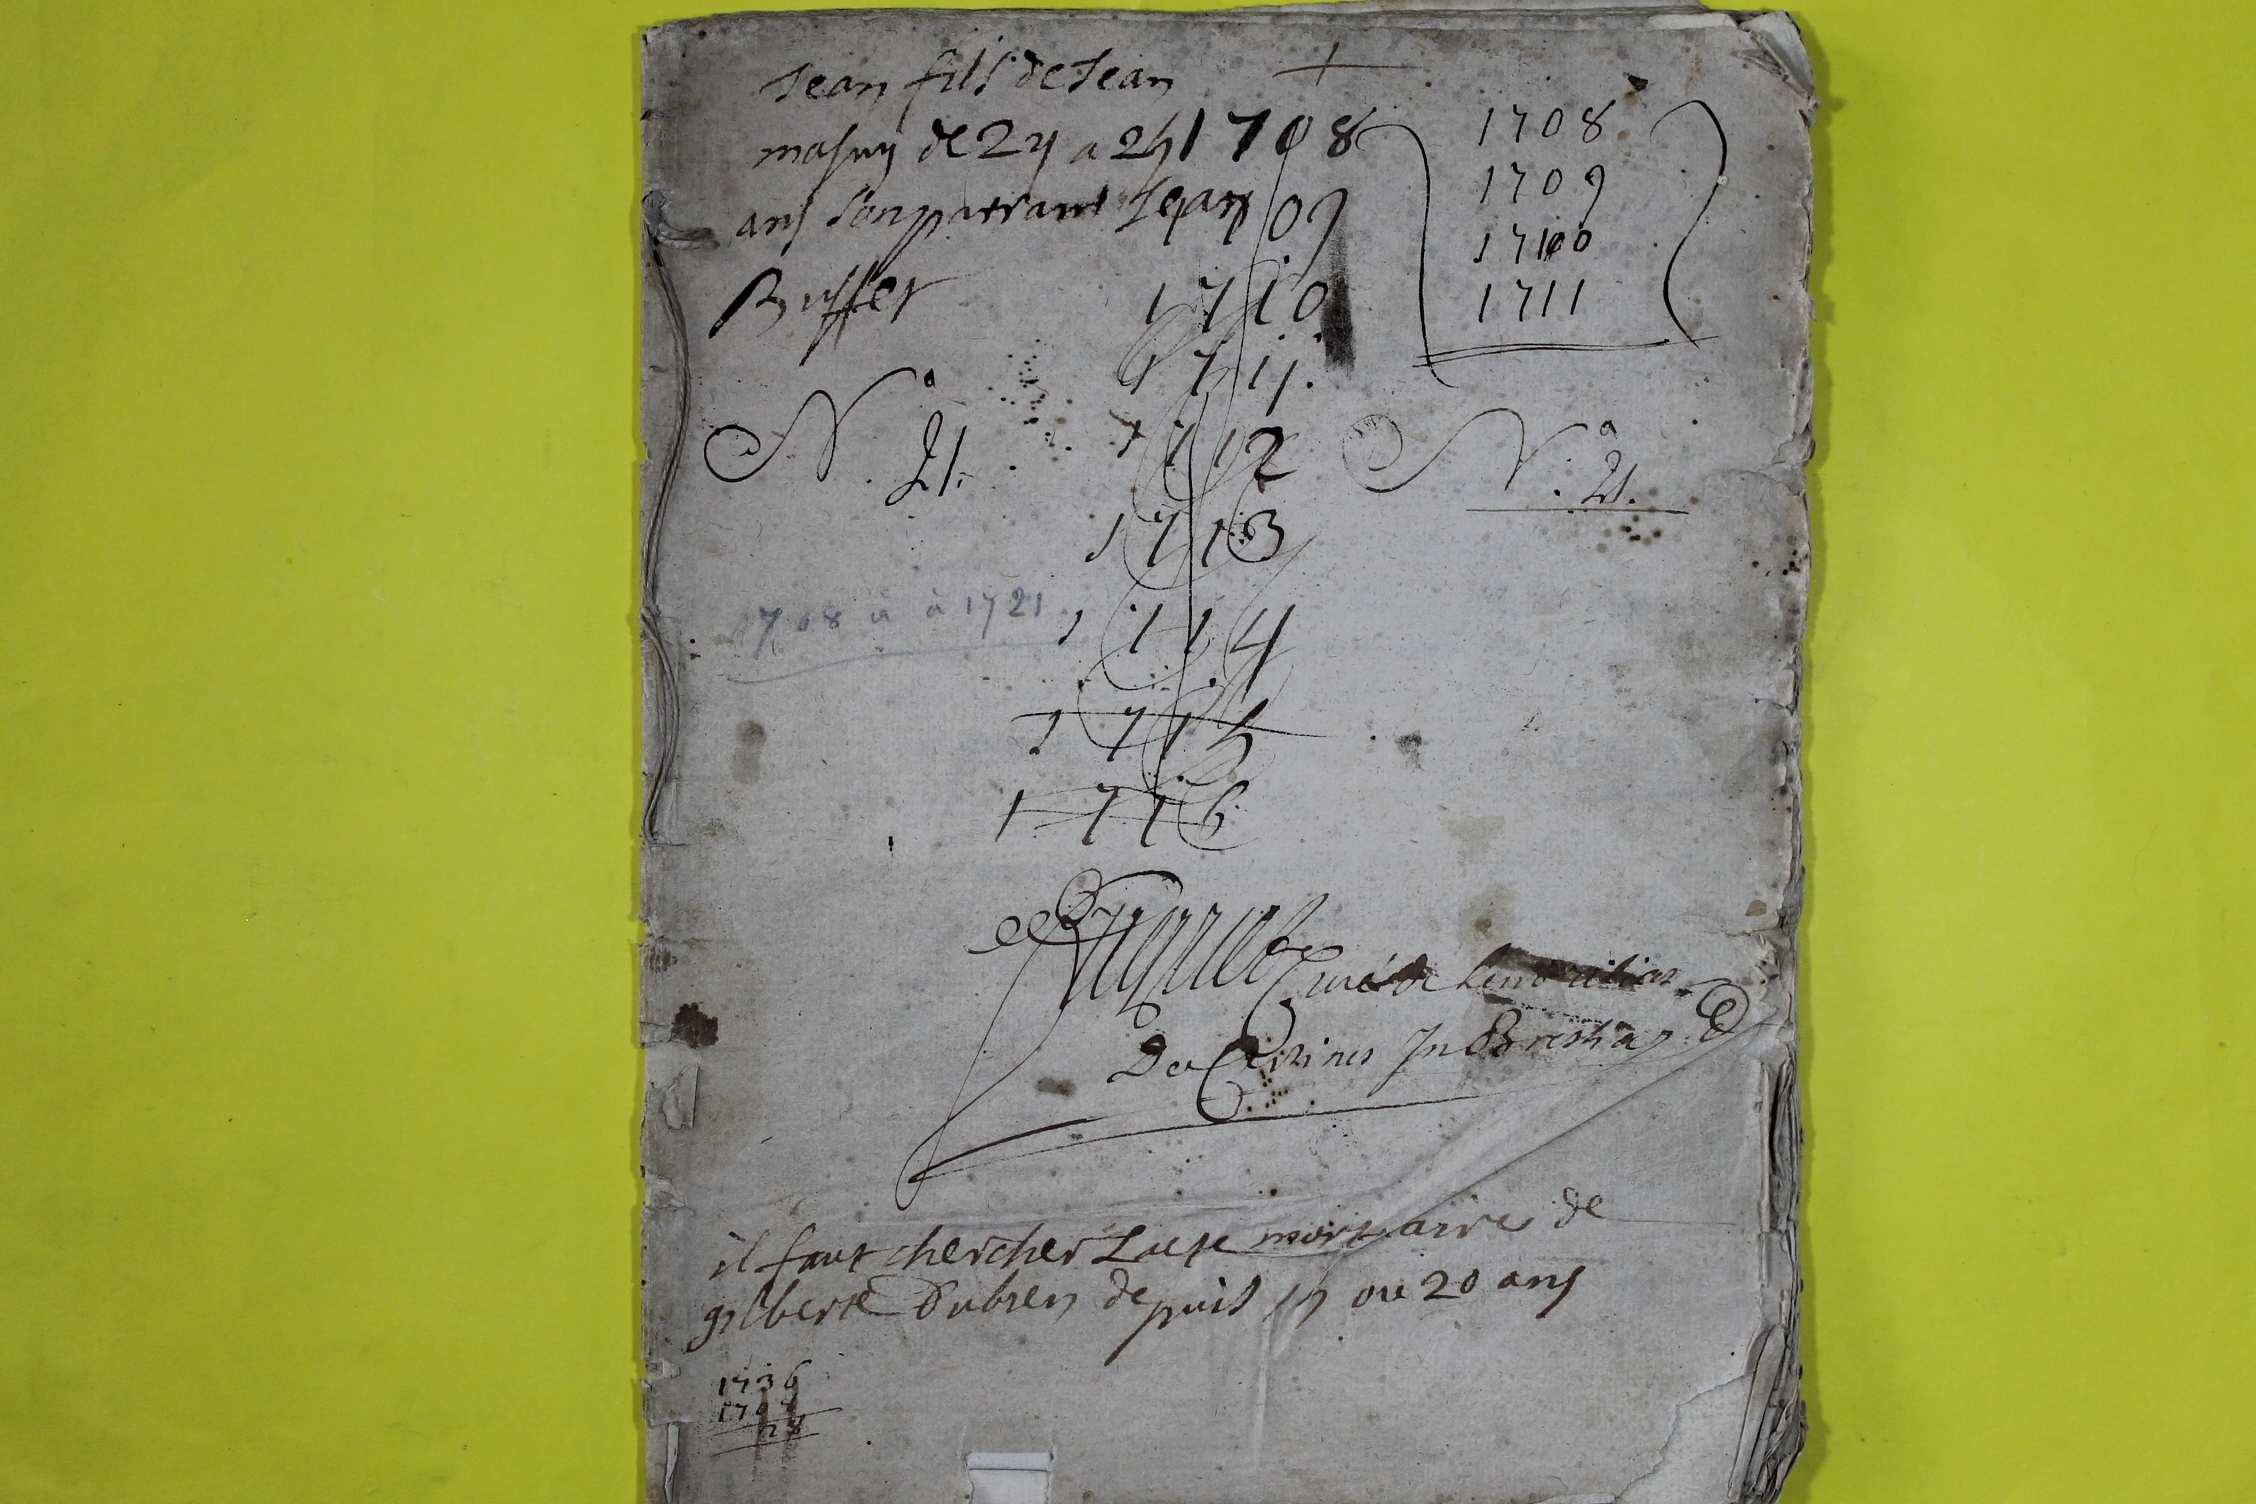 Jean fils de Jean
masuy de 24 a 25 1708
ans son parrant Jean 09
Buffet 1710
1711.
N.° 21.
1712
1713
1708 à à 1721
1714
1715
1716
1708
1709
1710
1711
N.° 21.
Curé de
De Cerines In Breshia
il faut chercher Lacte mortuaire de
gilberte Dubren depuis 15 ou 20 ans
1736
1708
28